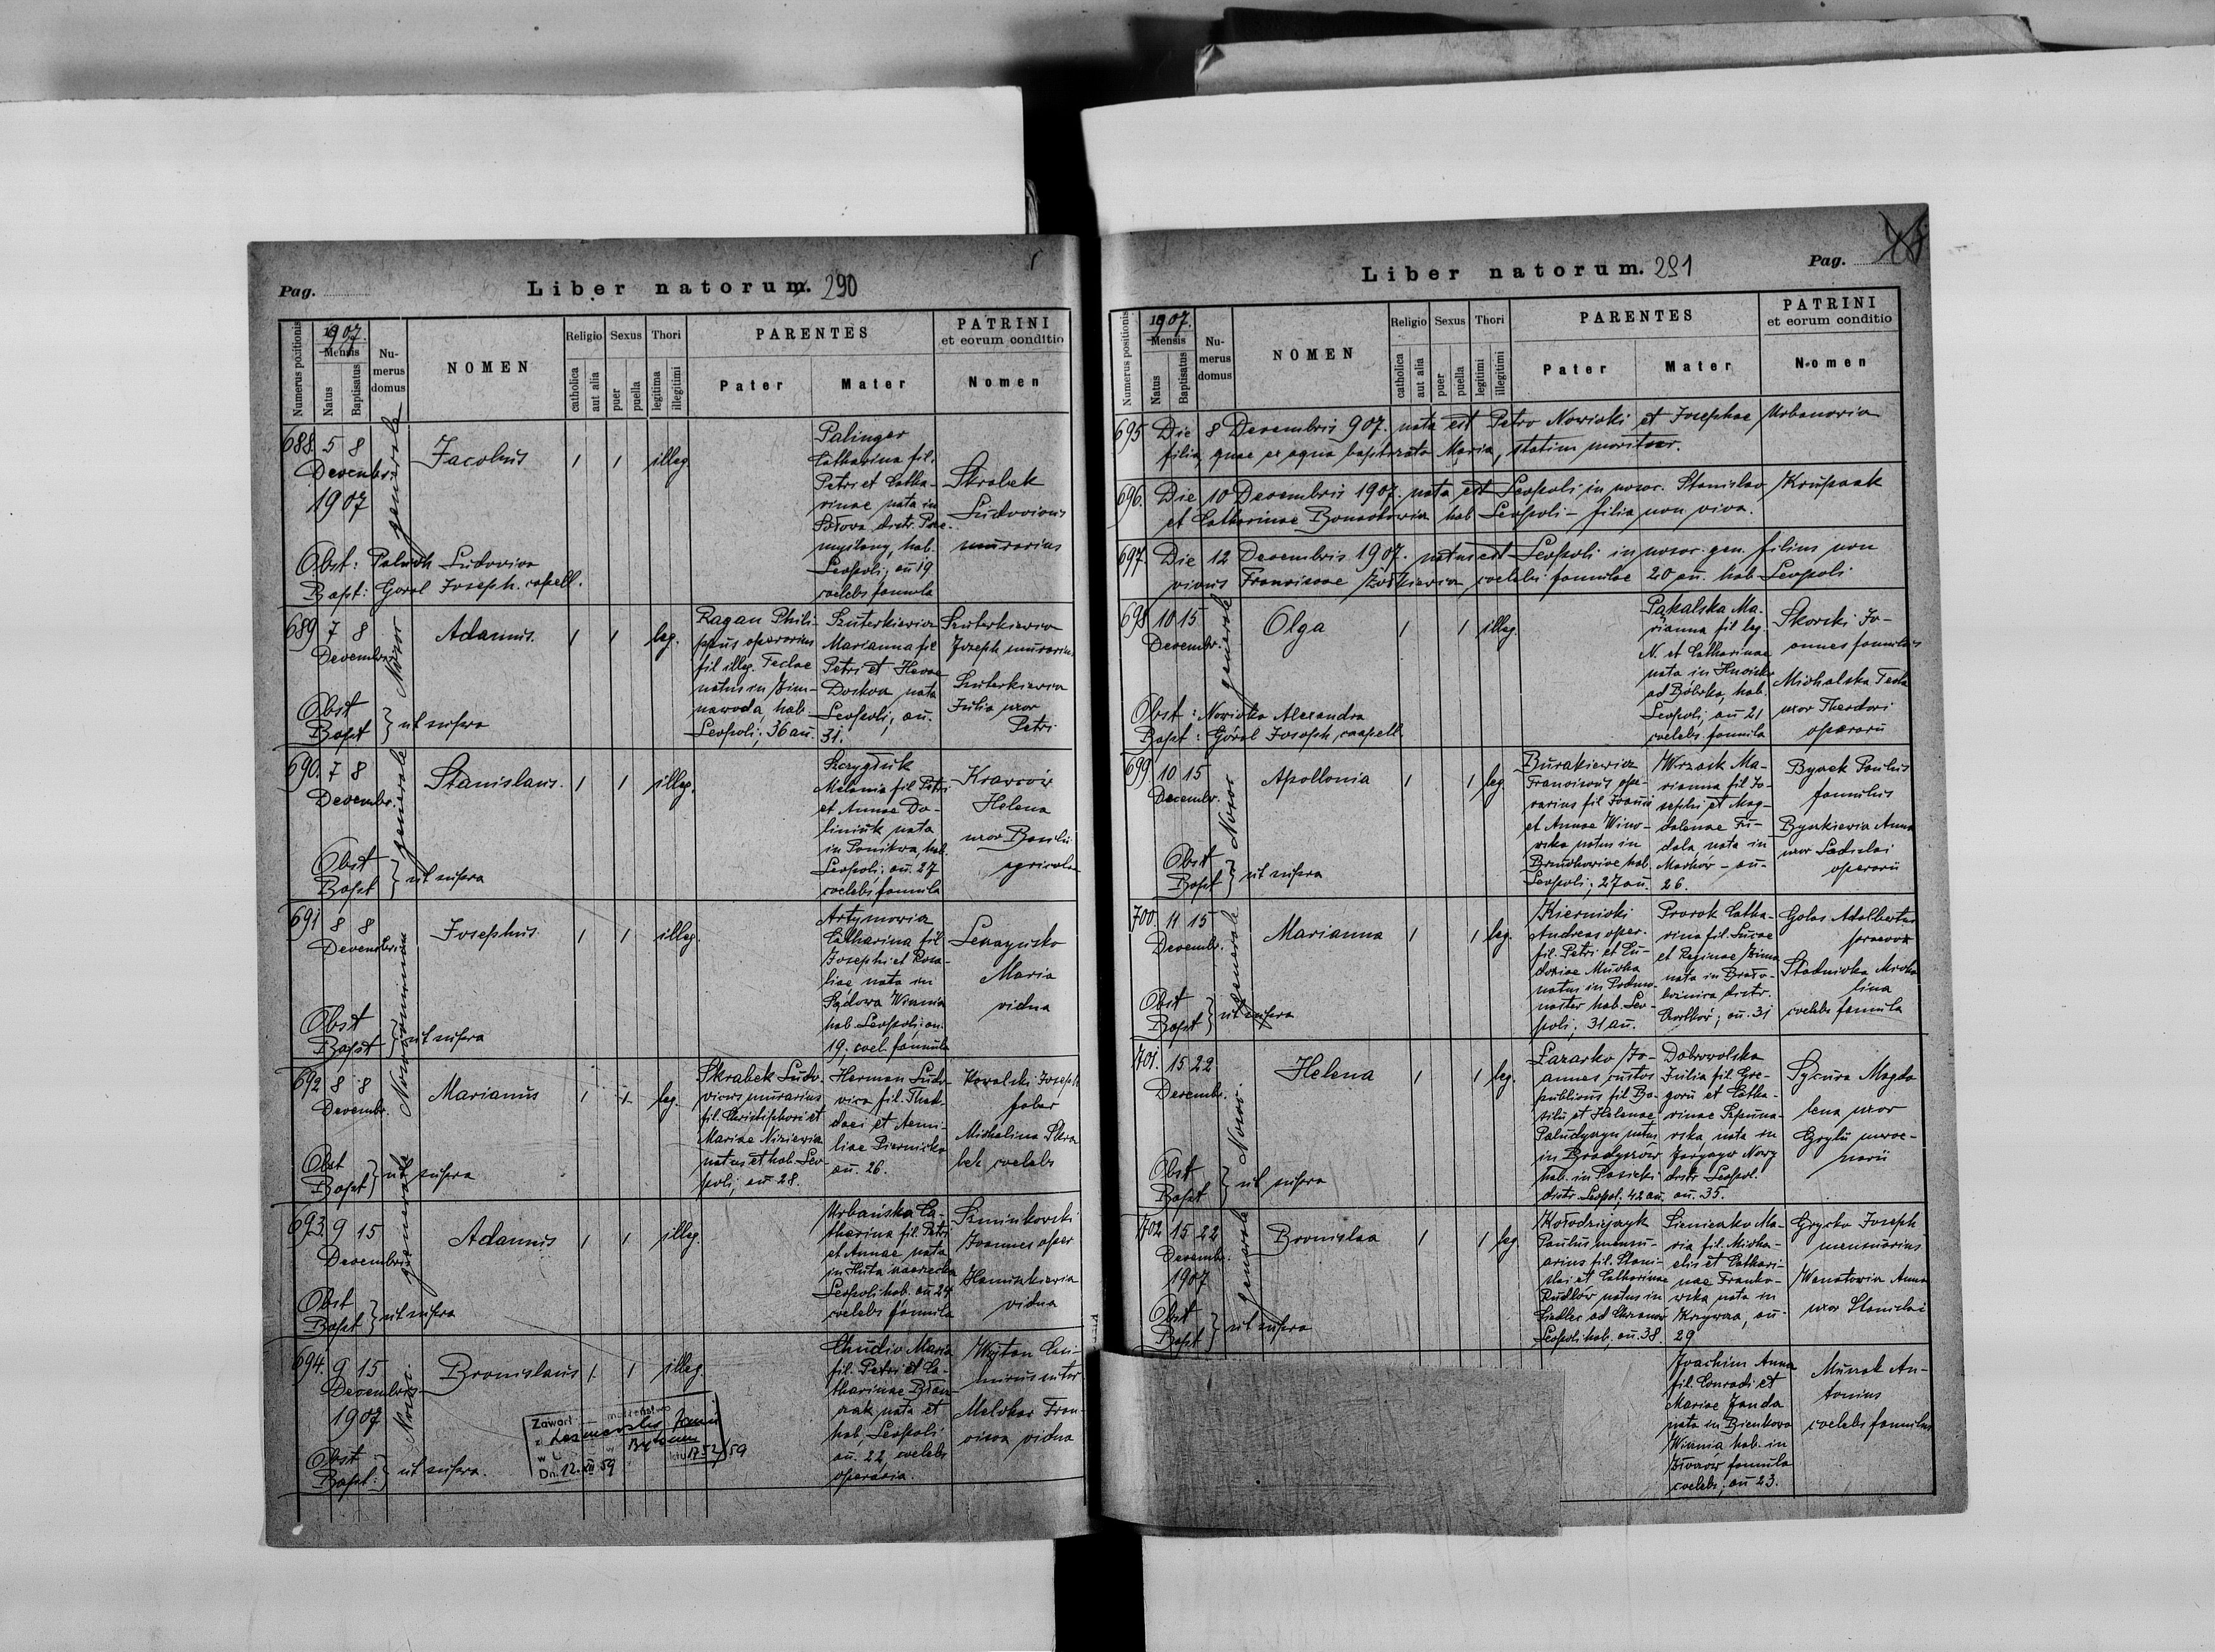 Pag.
Liber natorum. 290
Numerus positionis
1907.
Mensis
Natus
Baptisatus
Numerus domus
NOMEN
Religio
catholica
aut alia
Sexus
puer
puella
Thori
legitima
illegitimi
PARENTES
Pater
Mater
PATRINI
et eorum conditio
Nomen
688 5 8
Decembr.
1907
generale
Jacobus
1 1 illeg.
Palinger
Catharina fil.
Petri et Catha-
rinae nata in
distr. Prze-
myślany, hab.
Leopoli, an 19
coelebs famula
Skrabek
Ludovicus
murarius
Obst: Ludovica
Bapt: Goral Joseph. capell.
689 7 8
Decembris
Nosoc
Adamus.
1 1 leg.
Ragan Phili-
ppus operarius
fil illeg. Teclae
natus in Zim-
nawoda, hab.
Leopoli; 36 an.
Szuterkiewicz
Marianna fil
Petri et Hevae
nata
Leopoli; an.
31.
Szuterkiewicz
Joseph murarius
Szuterkiewicz
Julia uxor
Petri
Obst
Bapt } ut supra
690. 7 8
Decembr.
generale
Stanislaus.
1 1 illeg.
Szczygluk
Melania fil Petri
et Annae Do-
liniuk nata
in Ponikwa, hab.
Leopoli; an. 27
coelebs famula
Krawców
Helena
uxor Basilii
agricola
Obst
Bapt } ut supra
691 8 8
Decembris
Josephus.
1 1 illeg.
Artymowicz
Catharina fil
Josephi et Rosa-
liae, nata in
Sądowa Wisznia
hab. Leopoli; an.
19; coel. famula
Maria
vidua
Obst
Bapt } ut supra
692 8 8
Decembr.
Marianus
1 1 leg.
Skrabek Ludo-
vicus murarius
fil. Christophori et
Mariae
natus et hab. Leo-
poli, an 28.
Herman Ludo-
vica fil. Thad-
daei et Aemi-
liae Piernicka
an. 26.
Kowalski Joseph
faber
Michalina Skra-
bek coelebs
Obst
Bapt } ut supra
generale
693. 9 15
Decembris
Adamus
1 1 illeg.
Urbańska Ca-
tharina fil. Petri
et Annae nata
in Huta
Leopoli hab. an 24
coelebs famula
Szminkowski
Joannes oper
vidua
Obst
Bapt } ut supra
694. 9 15
Decembris
1907
Nosoc.
Bronislaus
1 1 illeg.
Maria
fil. Petri et Ca-
tharinae
nata et
hab. Leopoli
an. 22, coelebs
operaria.
Wojton Casi-
mirus sutor
Fran-
cisca vidua
Zawarł małżeństwo
z
w U w Bytomiu
Dn. 12. XII 59 1752/59
Obst
Bapt: } ut supra.
Liber natorum. 291
Pag.
Numerus positionis
1907.
Mensis
Natus
Baptisatus
Numerus domus
NOMEN
Religio
catholica
aut alia
Sexus
puer
puella
Thori
legitimi
illegitimi
PARENTES
Pater
Mater
PATRINI
et eorum conditio
Nomen
695 Die 8 Decembris 907. nata est Petro Nowicki et Josephae Urbanowicz
filia, quae ex aqua baptizata Maria, statim moritur.
696. Die 10 Decembris 1907. nata est Leopoli in nosoc. Stanislao Krupnak
et Catharinae hab Leopoli - filia non viva.
697. Die 12 Decembris 1907. natus est Leopoli in nosoc. gen. filius non
vivus Franciscae Żółkiewicz, coelebs famulae 20 an. hab Leopoli
698 10 15
Decembr.
generale
Olga
1 1 illeg.
Pąkalska Ma-
rianna fil leg.
N. et Catharinae
nata in
ad Bóbrka, hab.
Leopoli; an 21
coelebs famula
Skorski Jo-
annes famulus
Michalska Tecla
uxor Theodori
operarii
Obst: Nowicka Alexandra
Bapt: Góral Joseph, capell.
699. 10 15
Decembr.
Nosoc
Apollonia
1 1 leg
Burakiewicz
Franciscus ope-
rarius fil Joanni
et Annae Wino-
wska natus in
Brzuchowice hab.
Leopoli; 27 an.
Wrzask Ma-
rianna fil Jo-
sephi et Mag-
dalenae Fu-
dala, nata in
Marków - an-
26.
Bynek Paulus
famulus
Bynkiewicz Anna
uxor Ladislai
operarii
Obst
Bapt } ut supra
700 11 15
Decembr.
generale
Marianna
1 1 leg.
Kiernicki
Andreas oper.
fil. Petri et Eu-
doxiae Mucha
natus in Podmo-
naster hab. Leo-
poli; 31 an.
Prorok Catha-
rina fil. Lucae
et Reginae Zima
nata in Biało-
bożnica distr.
Czortków; an. 31
Golas Adalbertus
Stadnicka Micha-
lina
coelebs famula
Obst
Bapt } ut supra
701. 15 22
Decembr.
Nosoc.
Helena
1 1 leg.
Lazarko Jo-
annes custos
publicus fil Ba-
silii et Helenae
natus
in
hab. in Pasieki
distr Leopol, 42 an.
Dobrowolska
Julia fil Gre-
gorii et Catha-
rinae Szpuna-
rska, nata in
Jaryczow Nowy
distr Leopol.
an. 35.
Sycura Magda-
lena uxor
Obst
Bapt } ut supra
702 15 22
Decembr.
1907
generale
Bronislaa
1 1 leg.
Kołodziejczyk
Paulus mensu-
arius fil. Stani-
slai et Catharinae
Rudków natus in
Siedlec ad Chrzanów
Leopoli hab. an. 38.
Sieniczko Ma-
ria fil. Micha-
elis et Cathari-
nae Franko-
wska, nata in
Krzywcza, an
29
Gryczko Joseph
mensuarius
Anna
uxor Stanislai
Obst
Bapt } ut supra
Joachim Anna
fil. Conradi et
Mariae Janda
nata in Bienkowa
Wisznia hab. in
famula
coelebs; an 23.
An-
tonius
coelebs famulus